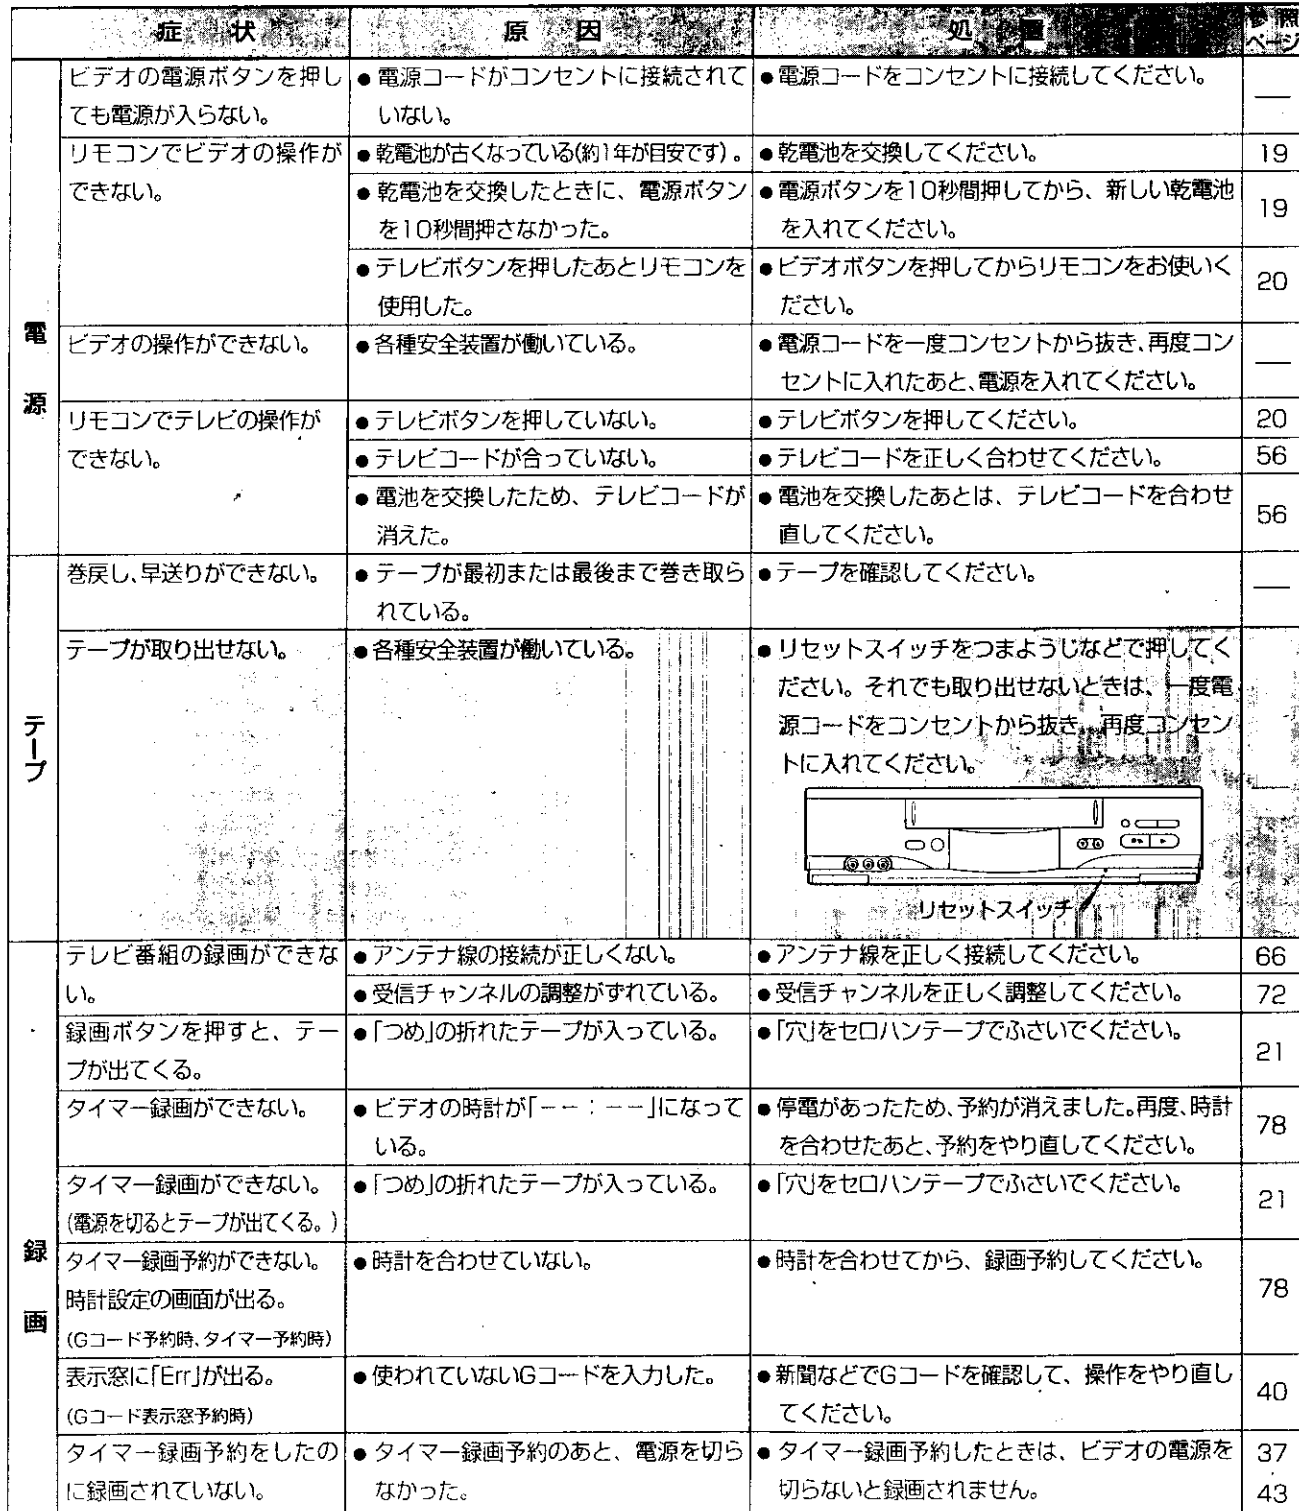 症 状 原 因 処 置 参照
ページ
電
源
ビデオの電源ボタンを押し
ても電源が入らない。
●電源コードがコンセントに接続されて
いない。
●電源コードをコンセントに接続してください。
—
リモコンでビデオの操作が
できない。
●乾電池が古くなっている(約1年が目安です)。
●乾電池を交換してください。
19
●乾電池を交換したときに、電源ボタン
を10秒間押さなかった。
●電源ボタンを10秒間押してから、新しい乾電池
を入れてください。
19
●テレビボタンを押したあとリモコンを
使用した。
●ビデオボタンを押してからリモコンをお使いく
ださい。
20
ビデオの操作ができない。
●各種安全装置が働いている。
●電源コードを一度コンセントから抜き、再度コン
セントに入れたあと、電源を入れてください。
—
リモコンでテレビの操作が
できない。
●テレビボタンを押していない。
●テレビボタンを押してください。
20
●テレビコードが合っていない。
●テレビコードを正しく合わせてください。
56
●電池を交換したため、テレビコードが
消えた。
●電池を交換したあとは、テレビコードを合わせ
直してください。
56
テープ
巻戻し、早送りができない。
●テープが最初または最後まで巻き取ら
れている。
●テープを確認してください。
—
テープが取り出せない。
●各種安全装置が働いている。
●リセットスイッチをつまようじなどで押してく
ださい。それでも取り出せないときは、一度電
源コードをコンセントから抜き、再度コンセン
トに入れてください。
—
リセットスイッチ
録
画
テレビ番組の録画ができな
い。
●アンテナ線の接続が正しくない。
●アンテナ線を正しく接続してください。
66
●受信チャンネルの調整がずれている。
●受信チャンネルを正しく調整してください。
72
録画ボタンを押すと、テー
プが出てくる。
●「つめ」の折れたテープが入っている。
●「穴」をセロハンテープでふさいでください。
21
タイマー録画ができない。
●ビデオの時計が「－－：－－」になって
いる。
●停電があったため、予約が消えました。再度、時計
を合わせたあと、予約をやり直してください。
78
タイマー録画ができない。
(電源を切るとテープが出てくる。)
●「つめ」の折れたテープが入っている。
●「穴」をセロハンテープでふさいでください。
21
タイマー録画予約ができない。
時計設定の画面が出る。
(Gコード予約時、タイマー予約時)
●時計を合わせていない。
●時計を合わせてから、録画予約してください。
78
表示窓に「Err」が出る。
(Gコード表示窓予約時)
●使われていないGコードを入力した。
●新聞などでGコードを確認して、操作をやり直し
てください。
40
タイマー録画予約をしたの
に録画されていない。
●タイマー録画予約のあと、電源を切ら
なかった。
●タイマー録画予約したときは、ビデオの電源を
切らないと録画されません。
37
43